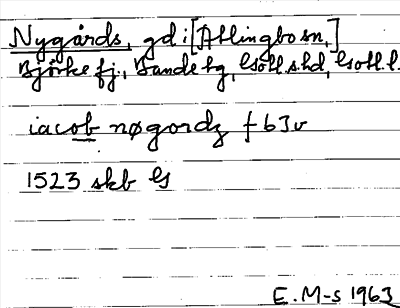 Nygårds, gd i [Atlingbo sn,]
Björke fj., Banda tg, Gotl.s.hd, Gotl. l.
iacob nøgordz f 63v
1523 skb G
E. M-s 1963